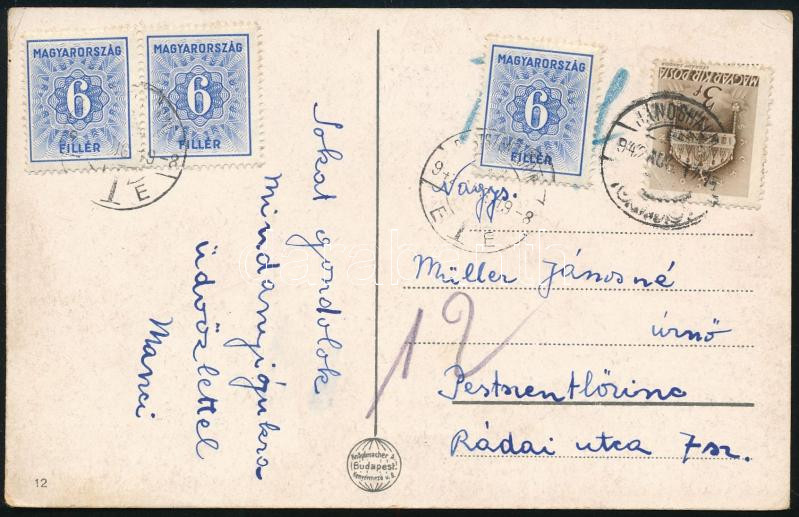 MAGYARORSZÁG
6
FILLÉR
MAGYARORSZÁG
6
FILLÉR
MAGYARORSZÁG
6
FILLÉR
MAGYAR KIR. POSTA
3f
Sokat gondolok
mindanyijukra
üdvözlettel
Manci
Nagys.
Müller Jánosné
úrnő
Pestszentlőrinc
Rádai utca 7sz.
12
Budapest.
12